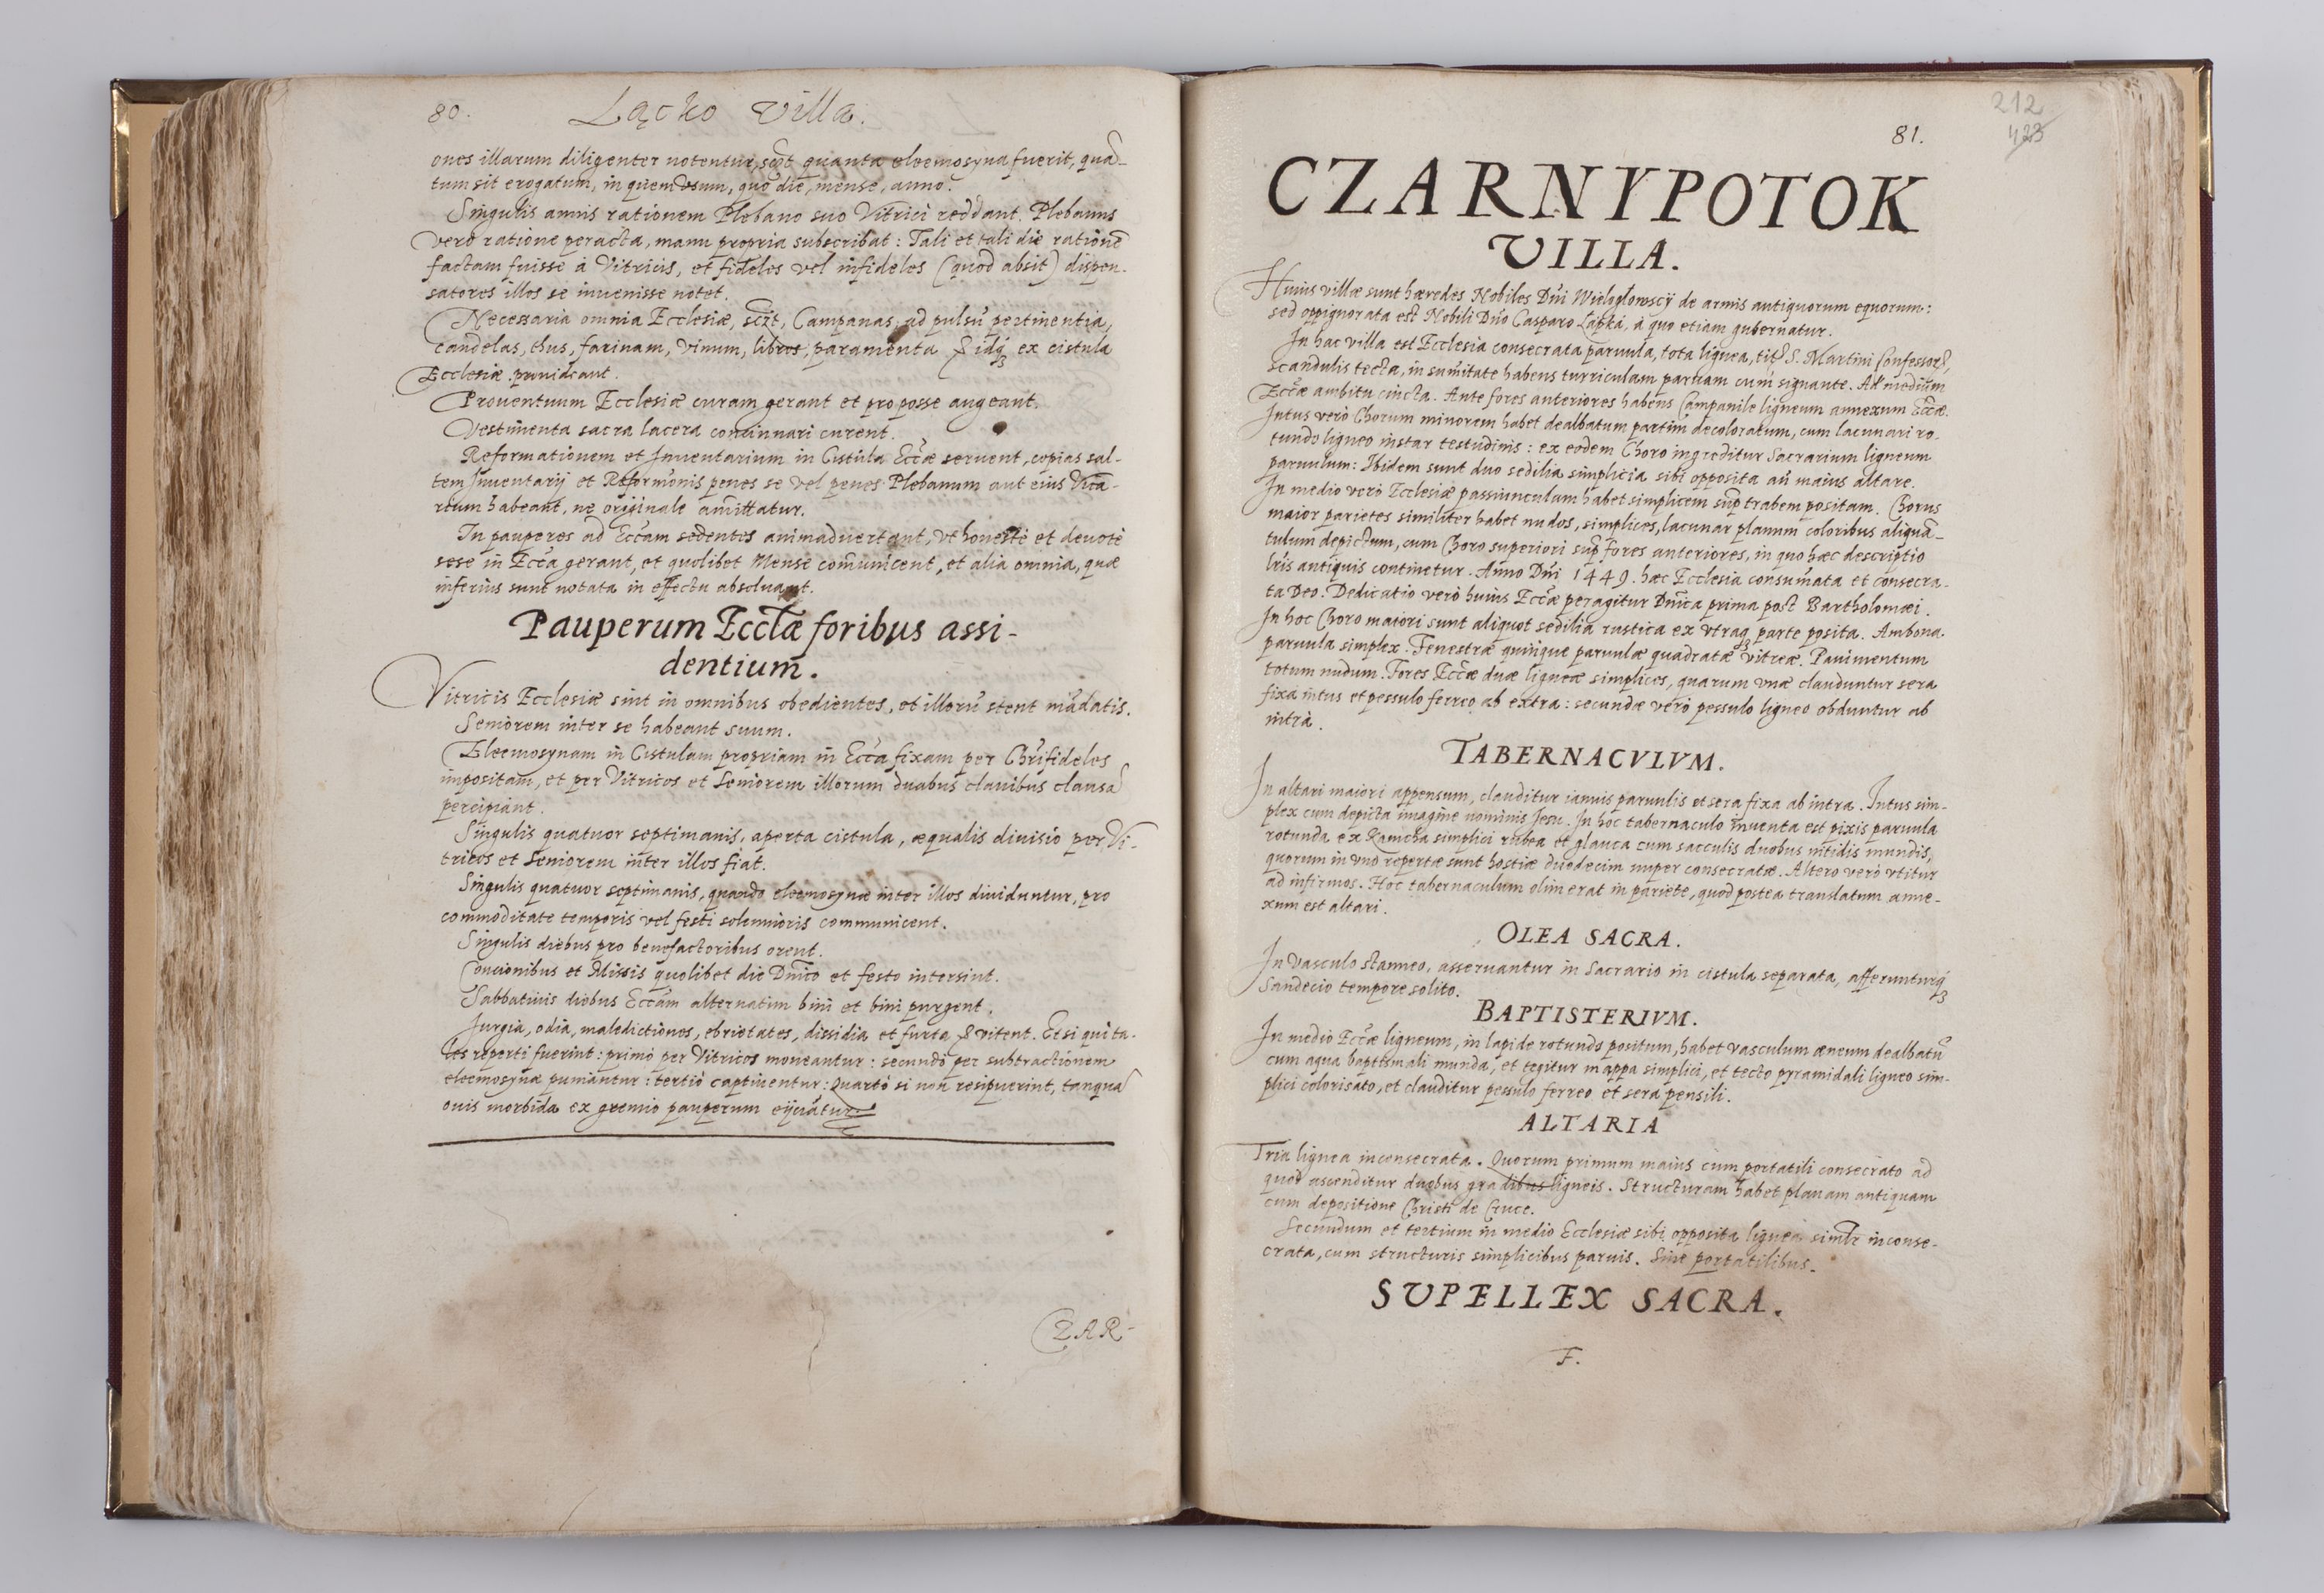 80. Lącko Villa.
ones illarum diligenter notentur, sct̃ quanta eleemosyna fuerit, quã-
tum sit erogatum, in quem vsum, quo die, mense, anno.
Singulis annis rationem Plebano suo Vitrici reddant. Plebanus
vero ratione peracta, manu propria subscribat: Tali et tali die rationẽ
factam fuisse à Vitricis, et fideles vel infideles (quod absit) dispen-
satores illos se inuenisse notet.
Necessaria omnia Ecclesiæ, sczt, Campanas, ad pulsũ pertinentia,
candelas, thus, farinam, vinum, libros, paramenta & idq₃ ex cistula
Ecclesiæ prouideant.
Prouentuum Ecclesiæ curam gerant et pro posse augeant.
Vestimenta sacra lacera concinnari curent.
Reformationem et Inuentarium in Cistula Eccæ seruent, copias sal-
tem Inuentarij et Reformõnis penes se vel penes Plebanum aut eius Vica-
rium habeant, ne originale amittatur.
In pauperes ad Eccam sedentes animaduertant, vt honestè et deuotè
sese in Ecca gerant, et quolibet Mense com̃unicent, et alia omnia, quæ
inferius sunt notata in effectu absoluant.
Pauperum Eccłæ foribus assi-
dentium.
Vitricis Ecclesiæ sint in omnibus obedientes, et illorũ stent mãdatis.
Seniorem inter se habeant suum.
Eleemosynam in Cistulam propriam in Ecca fixam per Chrifideles
impositam, et per Vitricos et Seniorem illorum duabus clauibus clausã
percipiant.
Singulis quatuor septimanis, aperta cistula, æqualis diuisio per Vi-
tricos et Seniorem inter illos fiat.
Singulis quatuor septimanis, quando eleemosynæ inter illos diuiduntur, pro
commoditate temporis vel festi solennioris communicent.
Singulis diebus pro benefactoribus orent.
Concionibus et Missis quolibet die Dnico et festo intersint.
Sabbatinis diebus Eccam alternatim bini et bini purgent.
Jurgia, odia, maledictiones, ebrietates, dissidia et furta & vitent. Et si qui ta-
les reperti fuerint: primò per Vitricos moneantur: secundò per subtractionem
eleemosynæ puniantur: tertiò captiuentur: Quartò si non resipuerint, tanquã
ouis morbida ex gremio pauperum eijciãtur.
CZAR-
212
423
81.
CZARNYPOTOK
VILLA.
Huius villæ sunt hæredes Nobiles Dñi Wielogłowscÿ de armis antiquorum equorum:
sed oppignorata est Nobili Dño Casparo Łąpka, à quo etiam gubernatur.
In hac villa est Ecclesia consecrata paruula, tota lignea, tit. S. Martini Confessor.,
scandulis tecta, in sum̃itate habens turriculam paruam cum signante. Ad medium
Eccæ ambitu cincta. Ante fores anteriores habens Campanile ligneum annexum Eccæ.
Intus verò Chorum minorem habet dealbatum partim decoloratum, cum lacunari ro-
tundo ligneo instar testudinis: ex eodem Choro ingreditur Sacrarium ligneum
paruulum: Ibidem sunt duo sedilia simplicia sibi opposita añ maius altare.
In medio verò Ecclesiæ passiunculum habet simplicem sup̃ trabem positam. Chorus
maior parietes similiter habet nudos, simplices, lacunar planum coloribus aliquã-
tulum depictum, cum Choro superiori sup̃ fores anteriores, in quo hæc descriptio
lr̃is antiquis continetur. Anno Dñi 1449. hæc Ecclesia consum̃ata et consecra-
ta Deo. Dedicatio verò huius Eccæ peragitur Dnica prima post Bartholomæi.
In hoc Choro maiori sunt aliquot sedilia rustica ex vtraq₃ parte posita. Ambona
paruula simplex. Fenestræ quinque paruulæ quadratæ vitreæ. Pauimentum
totum nudum. Fores Eccæ duæ ligneæ simplices, quarum vnæ clauduntur sera
fixa intus et pessulo ferreo ab extra: secundæ verò pessulo ligneo obduntur ab
intrà.
TABERNACVLVM.
In altari maiori appensum, clauditur ianuis paruulis et sera fixa ab intra. Intus sim-
plex cum depicta imagine nominis Jesu. In hoc tabernaculo inuenta est pixis paruula
rotunda ex Kamcha simplici rubea et glauca cum sacculis duobus nitidis mundis,
quorum in vno repertæ sunt hostiæ duodecim nuper consecratæ. Altero verò vtitur
ad infirmos. Hoc tabernaculum olim erat in pariete, quod postea translatum anne-
xum est altari.
OLEA SACRA.
In vasculo stanneo, asseruantur in Sacrario in cistula separata, afferunturq₃
Sandecio tempore solito.
BAPTISTERIVM.
In medio Eccæ ligneum, in lapide rotundo positum, habet vasculum æneum dealbatũ
cum aqua baptismali munda, et tegitur mappa simplici, et tecto pyramidali ligneo sim-
plici colorisato, et clauditur pessulo ferreo et sera pensili.
ALTARIA
Tria lignea inconsecrata. Quorum primum maius cum portatili consecrato ad
quod ascenditur duobus gradibus ligneis. Structuram habet planam antiquam
cum depositione Christi de Cruce.
Secundum et tertium in medio Ecclesiæ sibi opposita lignea simlr inconse-
crata, cum structuris simplicibus paruis. Sine portatilibus.
SUPELLEX SACRA.
F.